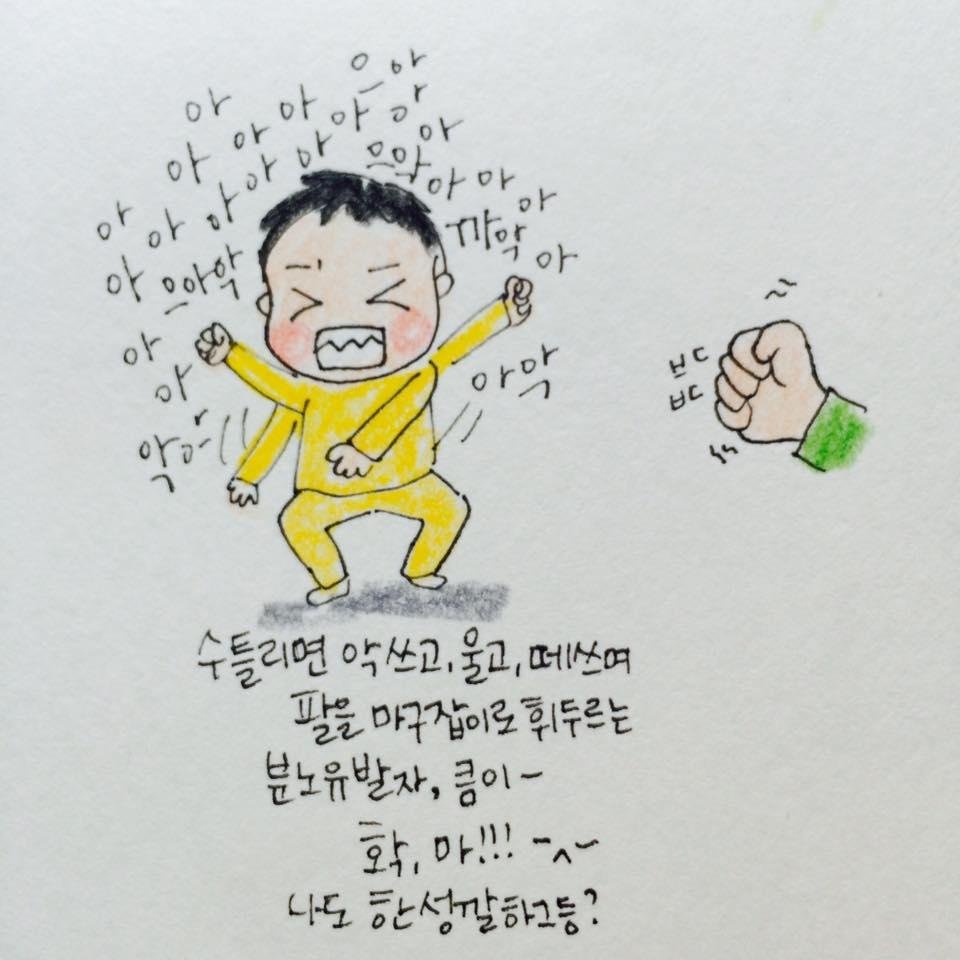 으아
아 아 아 아
아 아 아 아
으악 아
아 아 아 아
아 아
까악 아
아 으아악
아
아
아
아악
악아~
부드
부드
수틀리면 악쓰고, 울고, 떼쓰며
팔을 마구잡이로 휘두르는
분노유발자, 큼이~
확, 마!!! ㅡ^ㅡ
나도 한성깔하그등?